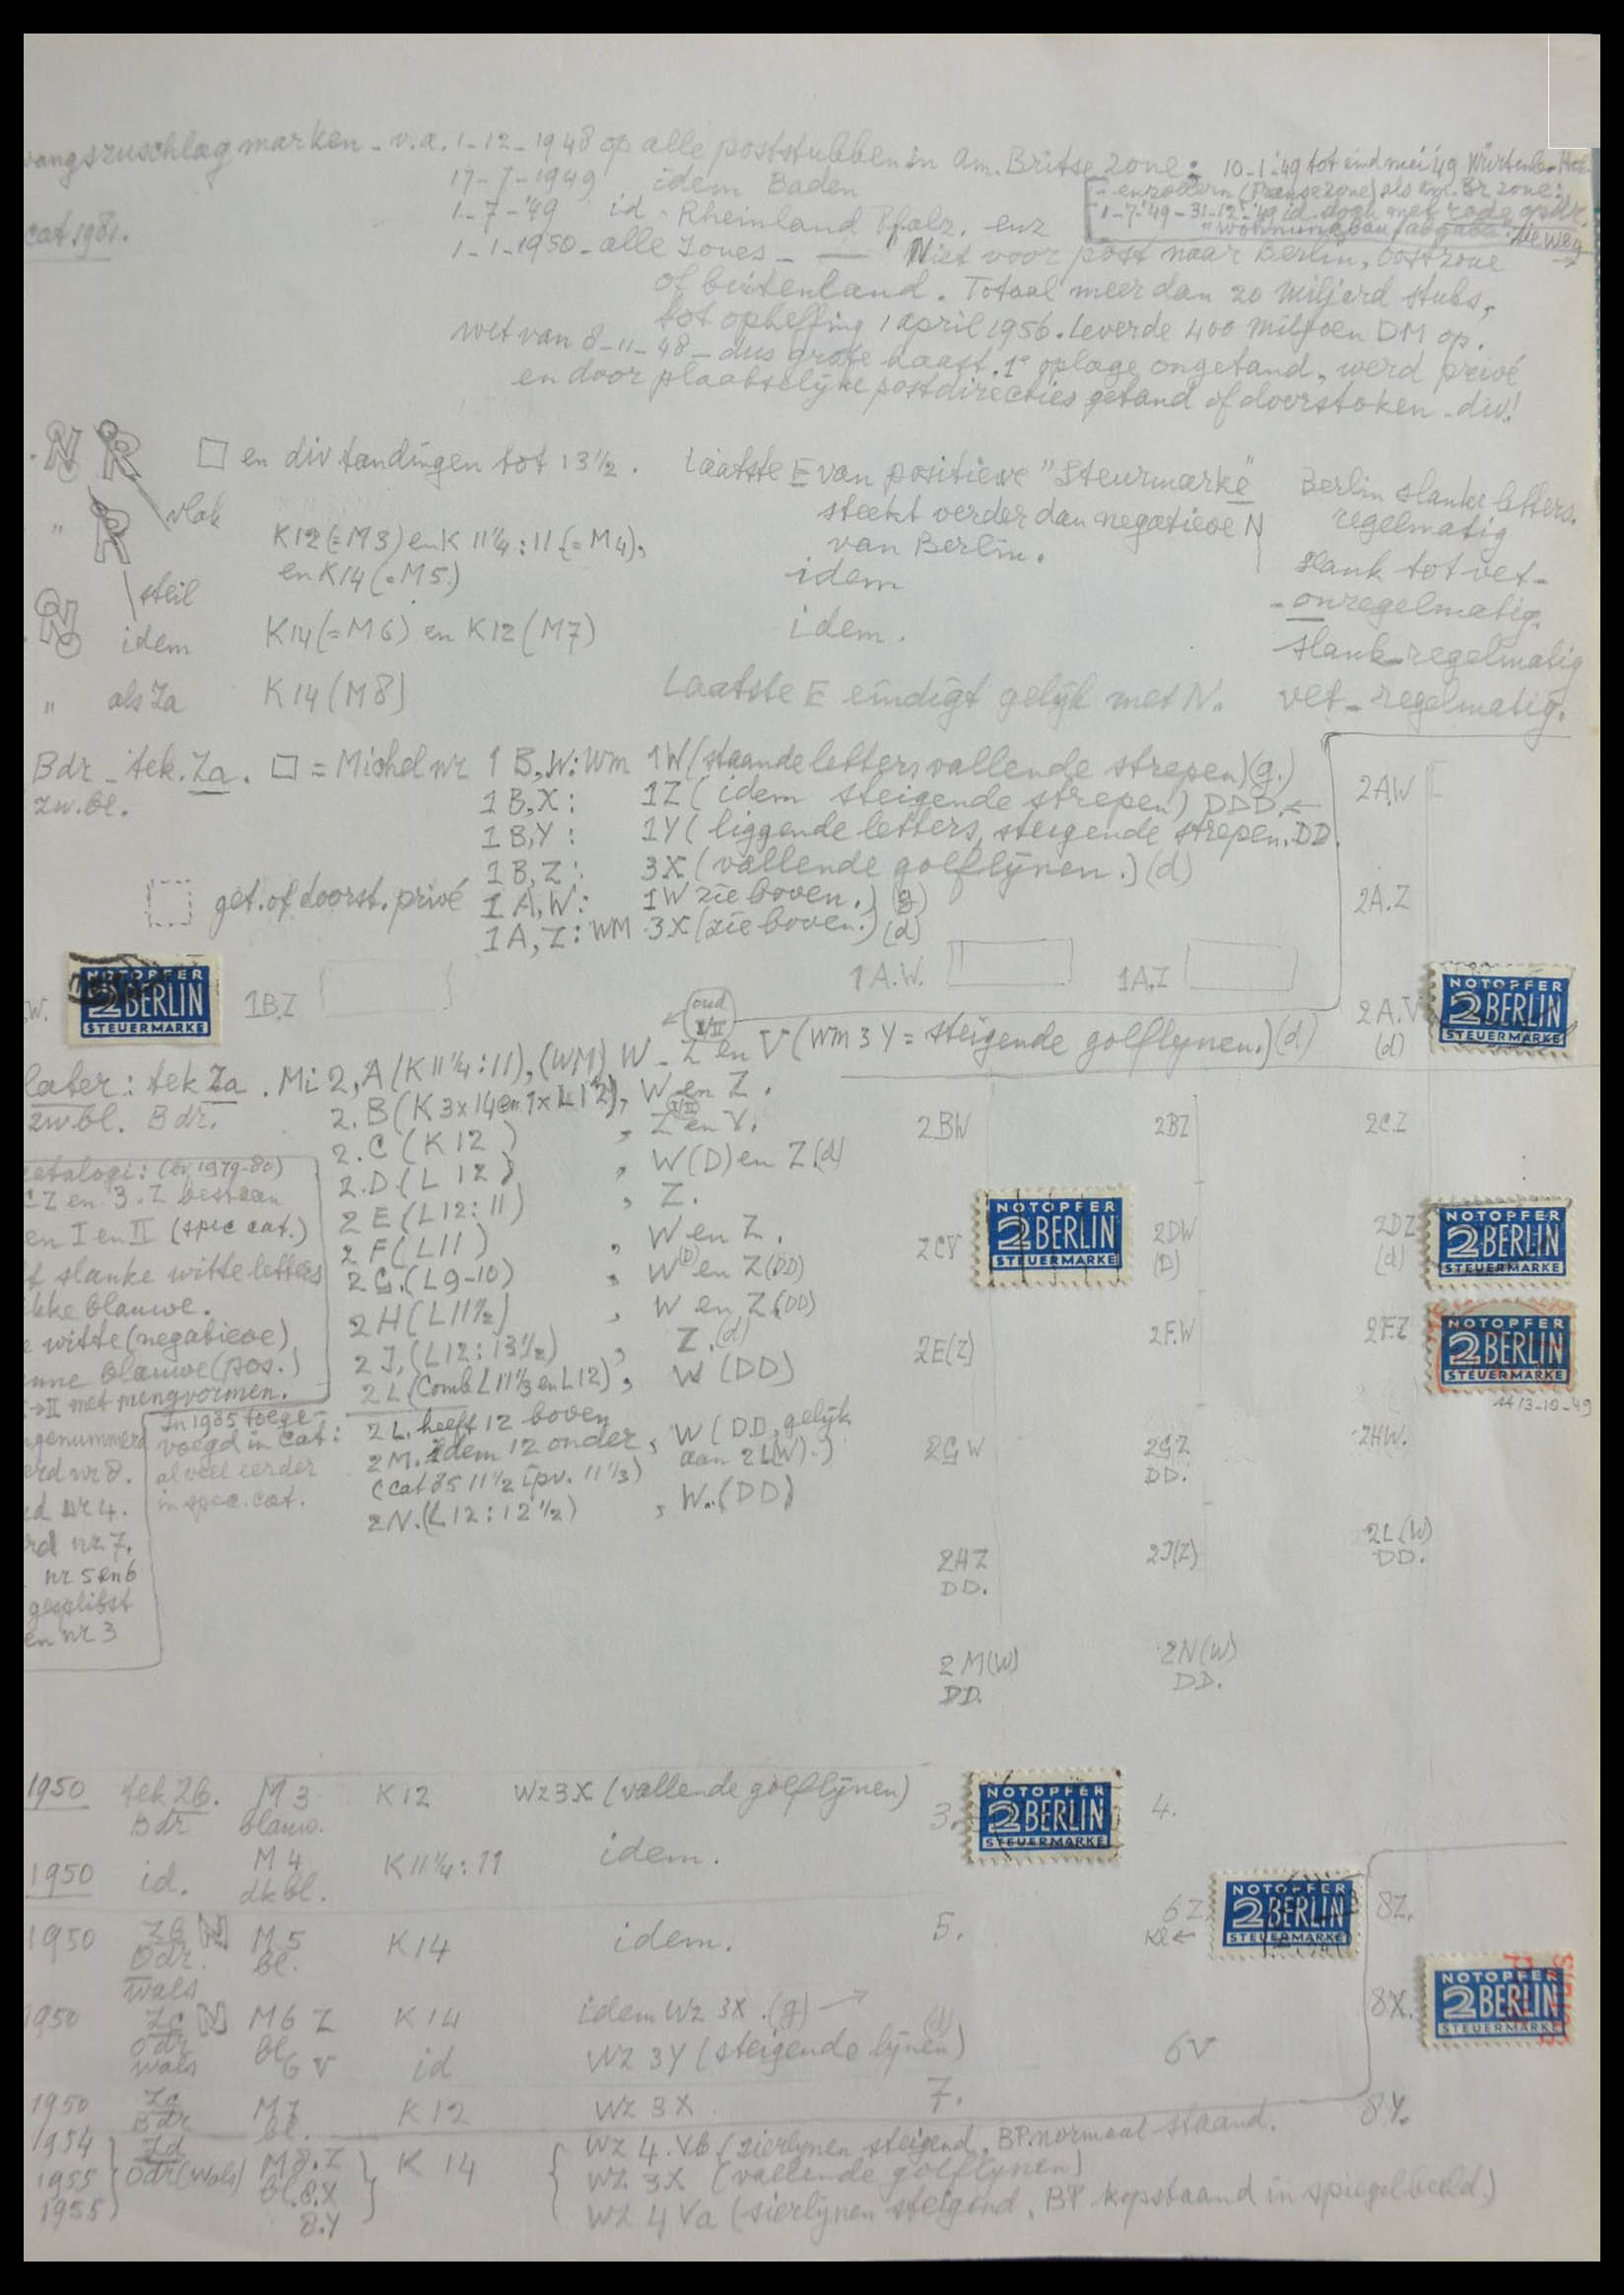 zuschlagmarken - v.a. 1-12-1948 op alle poststukken in Am. Britse Zone: 10-1-'49 tot eind mei '49
17-7-1949 idem Baden
enzollern (Franse zone) als Am. Br zone:
cat 1981.
1-7-'49 id. Rheinland Pfalz. enz
1-7-'49 - 31-12-'49 id. doch met rode opdr.
"Wohnungsbau / abgabe"
1-1-1950 - alle Zones - — Niet voor post naar Berlin, Oostzone
of buitenland. Totaal meer dan 20 miljard stuks,
tot opheffing 1 april 1956. Leverde 400 miljoen DM op.
wet van 8-11-48 - dus grote haast. 1e oplage ongetand, werd privé
en door plaatselijke postdirecties getand of doorstoken - div!
N R □ en div tandingen tot 13½. Laatste E van positieve "Steurmarke" Berlin slanke letters.
steekt verder dan negatieve N regelmatig
" R vlak
K12 (=M3) en K 11¼:11 (=M4), van Berlin.
en K14 (=M5) idem slank tot vet-
\ steil - onregelmatig.
N idem K14 (=M6) en K12 (M7) idem. slank-regelmatig
" als Za K14 (M8) Laatste E eindigt gelijk met N. vet - regelmatig.
Bdr - tek. Za. □ = Michel nr 1 B,W: Wm 1W (staande letters vallende strepen) (g.)
zw.bl. 1 B,X: 1Z (idem steigende strepen) DDD. ← 2AW
1 B,Y: 1Y (liggende letters, steigende strepen. DD.
1 B,Z: 3X (vallende golflijnen.) (d)
get. of doorst. privé 1 A,W: 1W zie boven.) (g) 2A.Z
1A,Z: WM 3X (zie boven.) (d)
1A.W. 1A,Z
NOTOPFER
2 BERLIN
STEUERMARKE
W. 1B,Z
oud
I/II
2A.V
(d)
NOTOPFER
2 BERLIN
STEUERMARKE
later: tek Za. Mi 2, A (K 11¼:11), (WM) W - Z en V (Wm 3Y = steigende golflijnen.) (d)
zwbl. Bdr. 2.B (K 3x14 en 1x L12), W en Z.
2.C (K12), Z en V.
2BW 2BZ 2C.Z
2.D (L 12), W(D) en Z (d)
2 E (L12:11), Z.
2 F (L11), W en Z.
2 G. (L9-10), W (D) en Z (DD)
2 H (L11½), W en Z (DD)
2 J, (L12:13½), Z. (d)
2 L (Comb. L11⅓ en L12), W (DD)
2 L. heeft 12 boven
2 M. idem 12 onder, W (DD, gelijk
aan 2L(W).)
(cat 85 11½ ipv. 11⅓)
2N. (L12:12½), W.. (DD)
catalogi: (bv 1979-80)
CZ en 3.Z bestaan
en I en II (spec cat.)
slanke witte letters
blauwe.
witte (negatieve)
blauwe (pos.)
→ II met mengvormen.
genummerd
erd nr 8.
nr 4.
nr 7.
nr 5 en 6
gesplitst
en nr 3
In 1985 toege-
voegd in Cat:
al veel eerder
in spec. cat.
2CV
NOTOPFER
2 BERLIN
STEUERMARKE
2DW
(D)
2DZ
(d)
NOTOPFER
2 BERLIN
STEUERMARKE
2E(Z) 2F.W 2F.Z
NOTOPFER
2 BERLIN
STEUERMARKE
13-10-49
2GW 2GZ
DD. 2HW.
2HZ
DD. 2J(Z) 2L(W)
DD.
2M(W)
DD. 2N(W)
DD.
1950 tek Zb. M3 K12 Wz 3X (vallende golflijnen) 3.
Bdr blauw.
NOTOPFER
2 BERLIN
STEUERMARKE
4.
1950 id. M4 K11¼:11 idem.
dkbl.
1950 Zb N M5 K14 idem. 5.
Odr. bl.
wals
6Z
NOTOPFER
2 BERLIN
STEUERMARKE
8Z.
1950 Zc N M6 Z K14 idem Wz 3X. (g) →
odr bl
wals 6V id Wz 3Y (steigende lijnen) (d) 6V
8X.
NOTOPFER
2 BERLIN
STEUERMARKE
1950 Zc M7 K12 Wz 3X 7.
Bdr bl.
8Y.
1954 Zd M8.Z K14 Wz 4.Vb (sierlijnen steigend, BP normaal staand.
1955 Odr (wals) Bl. 8.X Wz 3X (vallende golflijnen)
1955 8.Y Wz 4 Va (sierlijnen steigend, BP kopstaand in spiegelbeeld.)